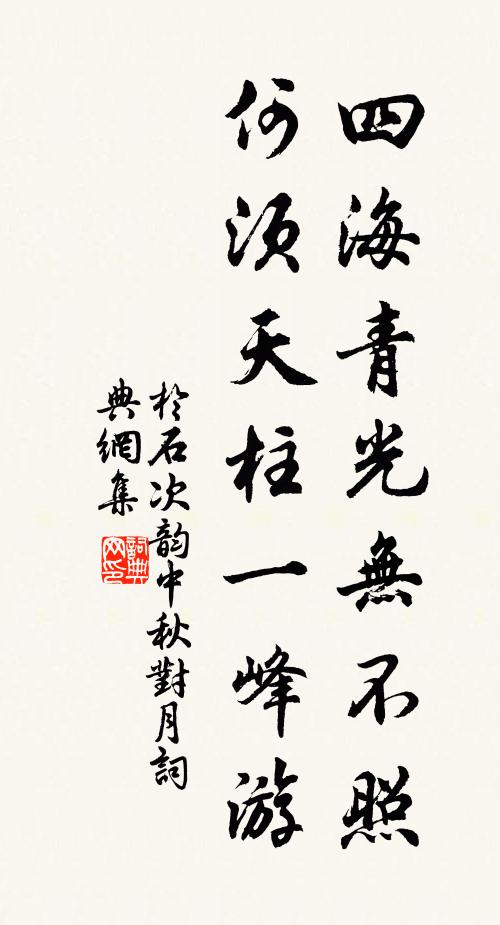 四海青光無不照
何須天柱一峰游
於石次韵中秋對月詞
典網集
詞典网印